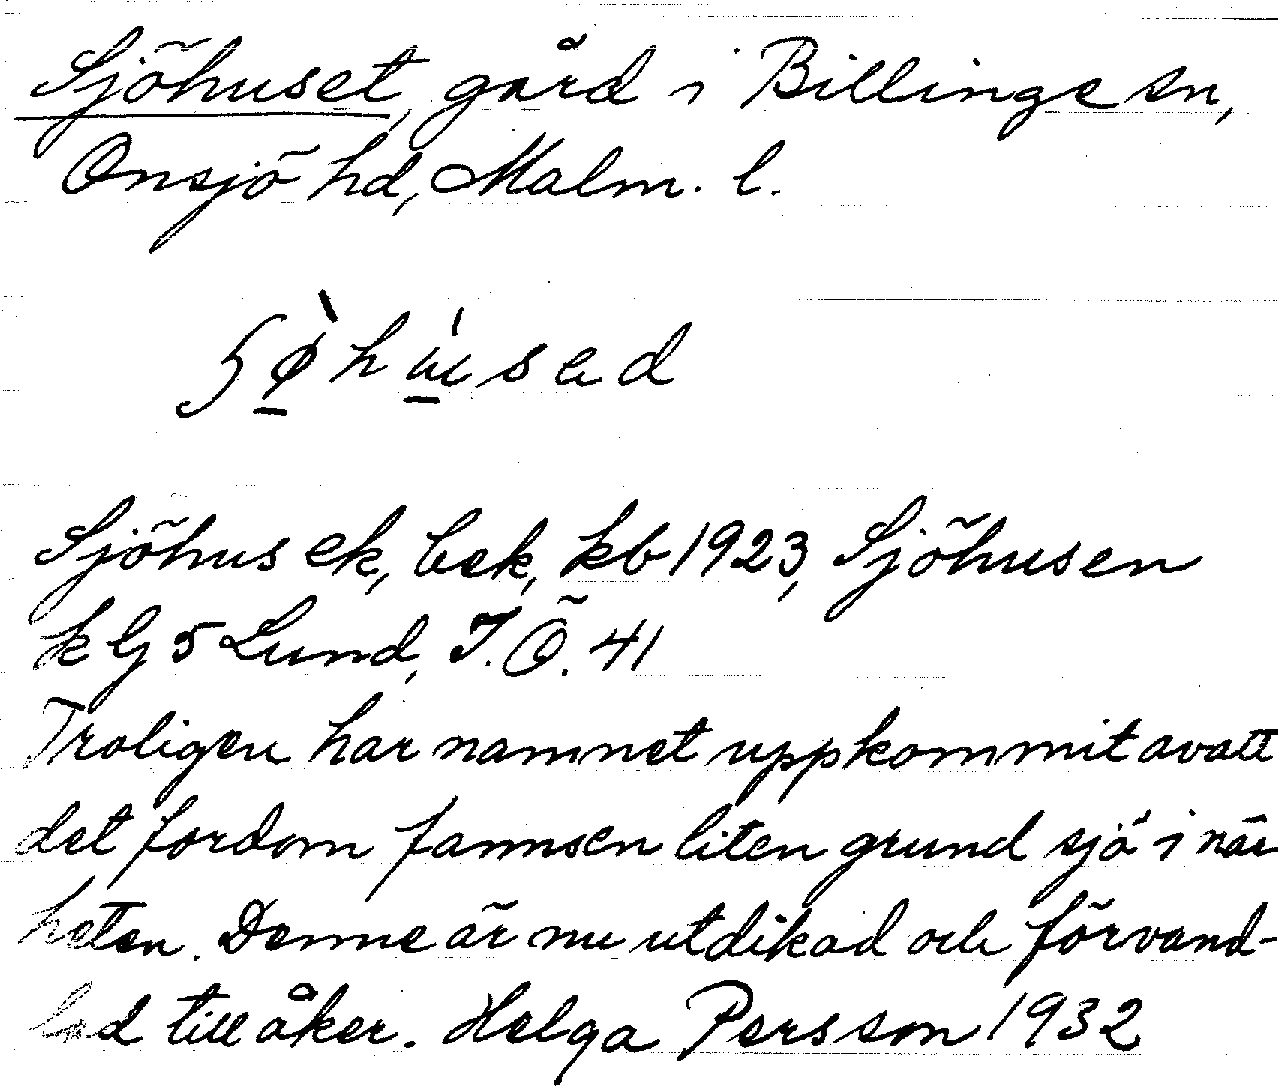 Sjöhuset, gård i Billinge sn,
Onsjö hd, Malm. l.
Sjöhus ek, bek, kb 1923, Sjöhusen
k G 5 Lund, J. Ö. 41
Troligen har namnet uppkommit av att
det fordom fanns en liten grund sjö i när
heten. Denne är nu utdikad och förvand-
lad till åker. Helga Persson 1932